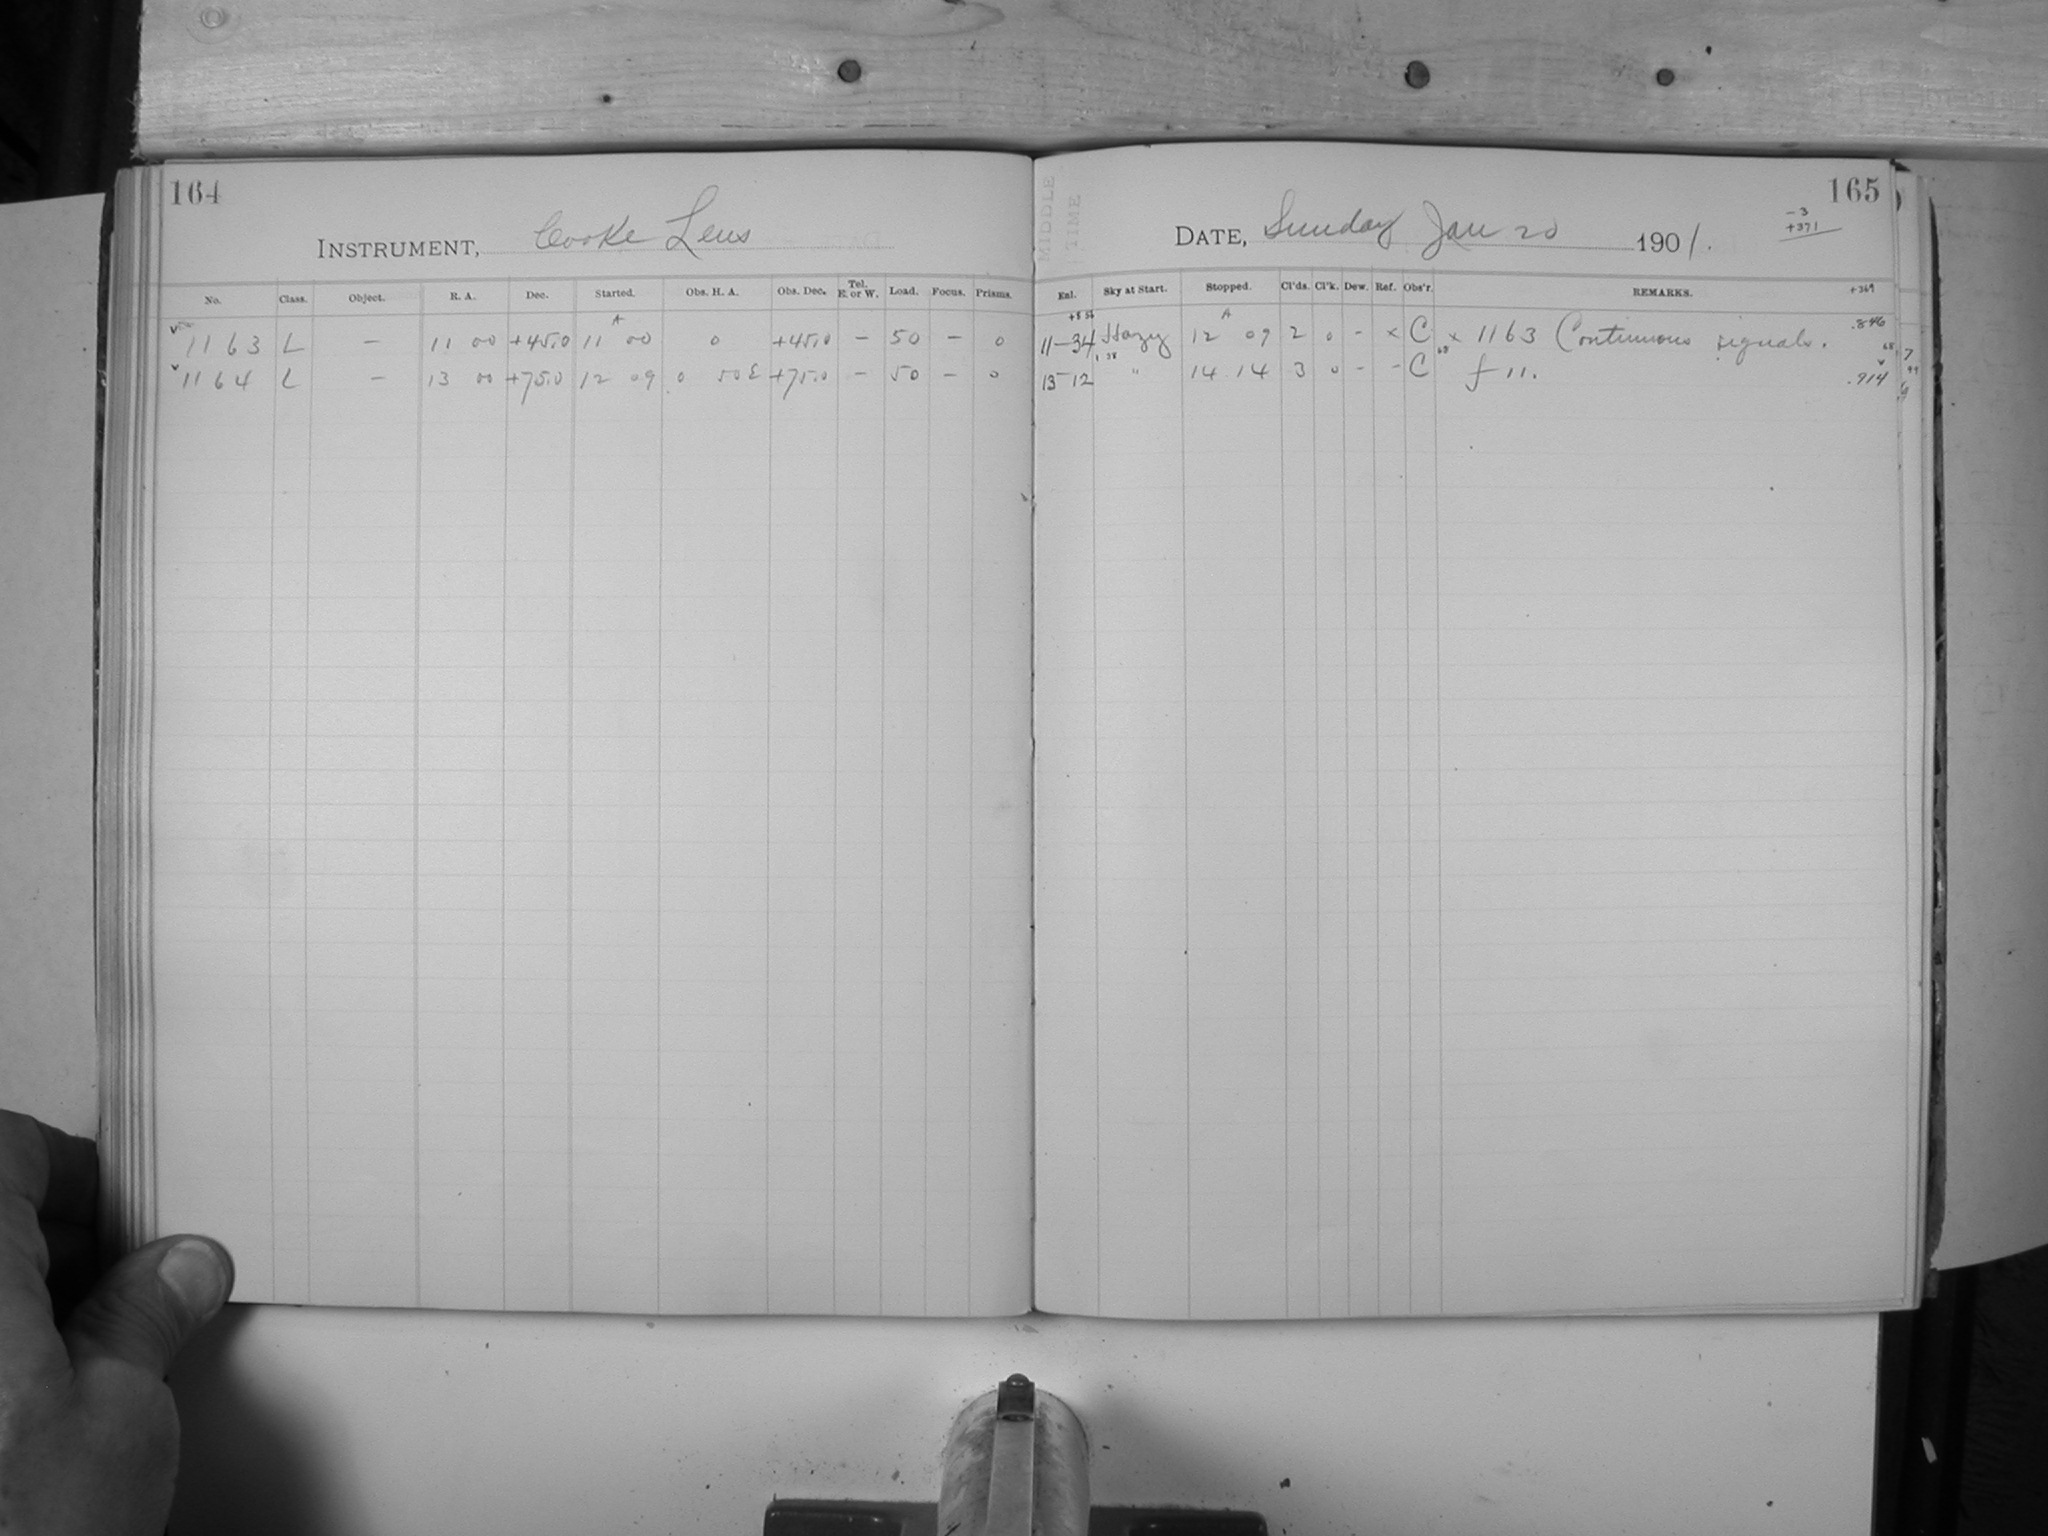 164
INSTRUMENT, Cooke Lens
No. Class. Object. R. A. Dec. Started. Obs. H. A. Obs. Dec. Tel. E. or W. Load. Focus. Prisms.
A
v 1163 L — 11 00 +45.0 11 00 0 +45.0 — 50 — 0
v 1164 L — 13 00 +75.0 12 09 0 50E +75.0 — 50 — 0
MIDDLE
TIME
165
-3
+371
DATE, Sunday Jan 20 1901.
Enl. Sky at Start. Stopped. Cl'ds. Cl'k. Dew. Ref. Obs'r. REMARKS. +369
A
11-34 Hazy 12 09 2 0 - × C × 1163 Continuous signals. .846
68
13-12 " 14 14 3 0 - - C f 11. .914